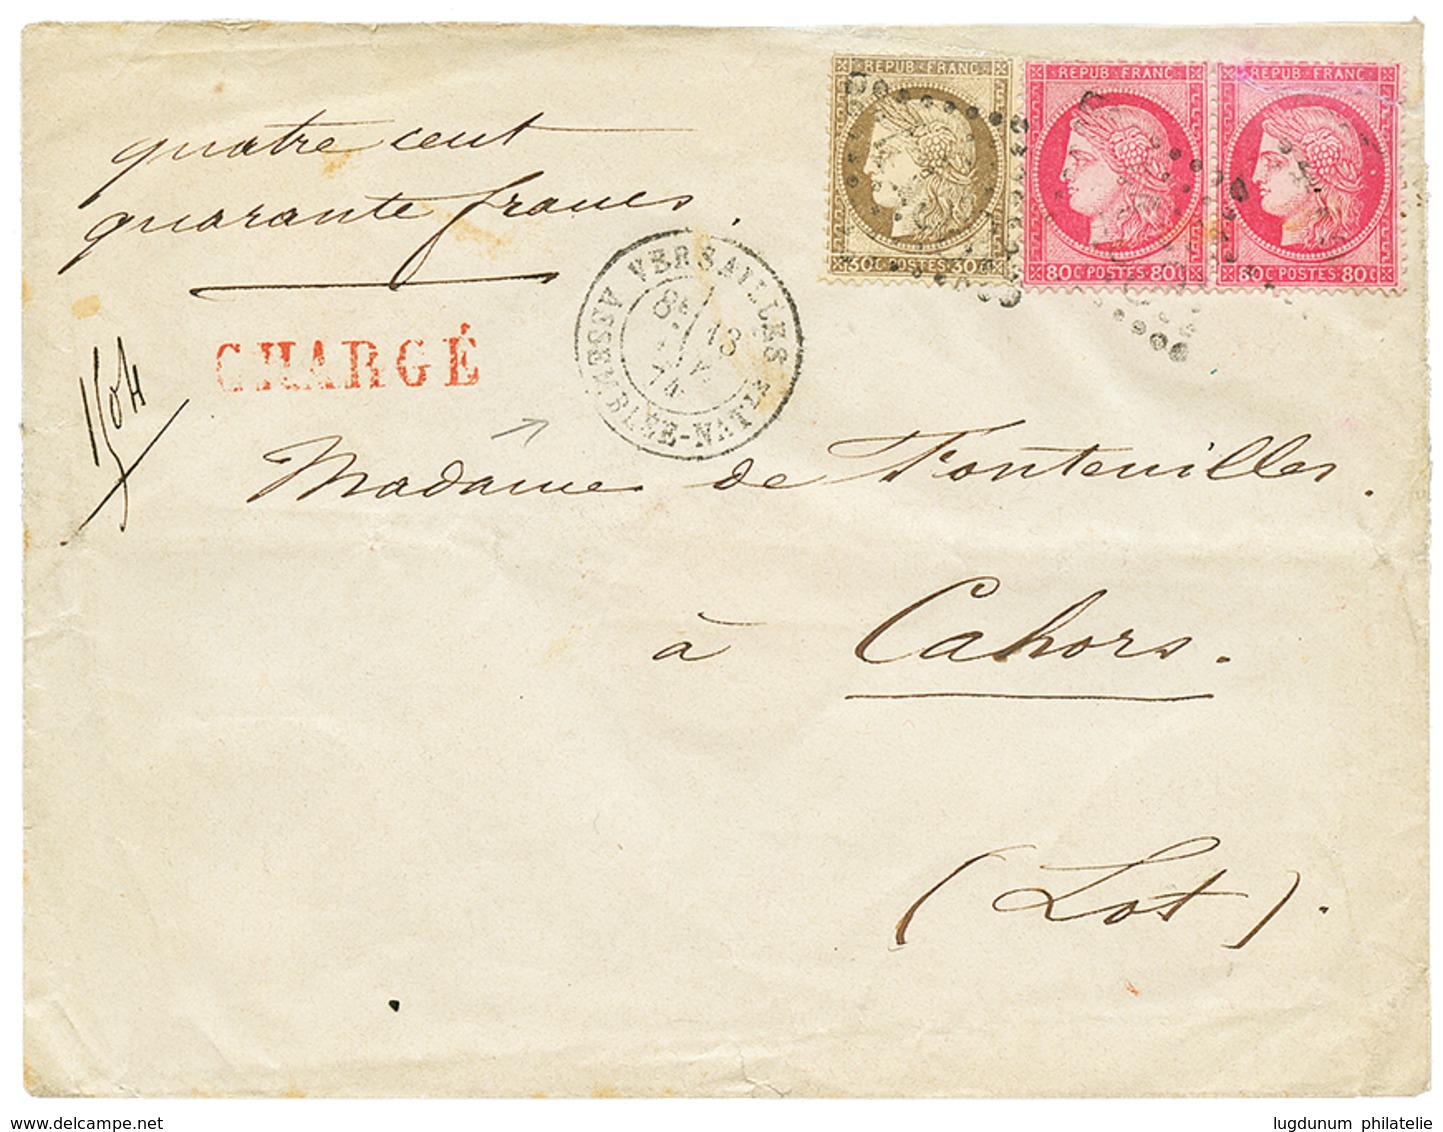 REPUB FRANC
30C POSTES 30C
REPUB FRANC
80C POSTES 80C
REPUB FRANC
80C POSTES 80C
quatre cent
quarante francs.
VERSAILLES
ASSEMBLEE-NATLE
18
74
CHARGÉ
1504
Madame de Fontenilles.
à Cahors.
(Lot).
www.delcampe.net
lugdunum philatelie